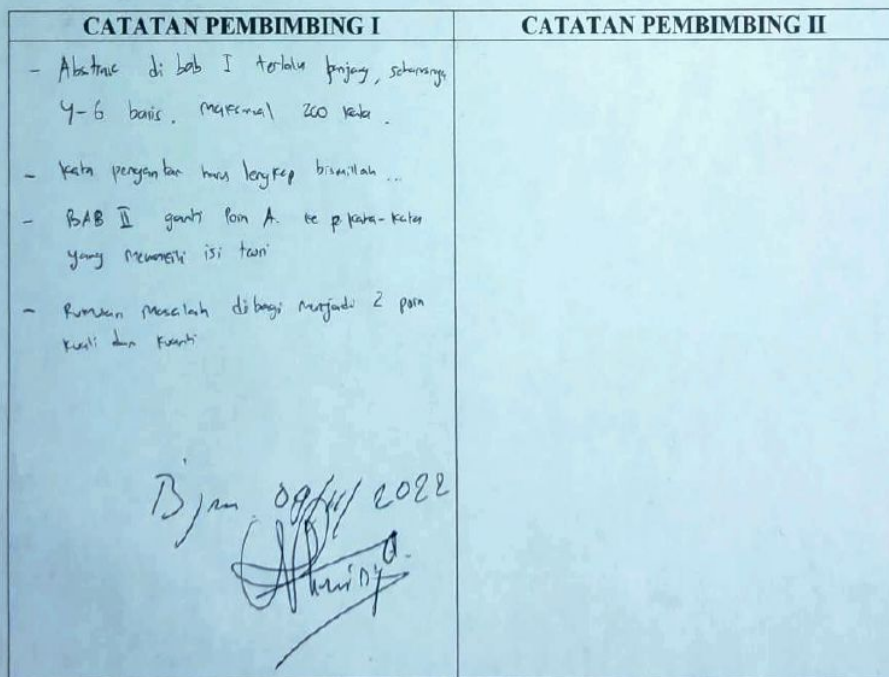 CATATAN PEMBIMBING I
CATATAN PEMBIMBING II
- Abstrak di bab I terlalu panjang, seharusnya
4-6 baris. maksimal 200 kata.
- kata pengantar harus lengkap bismillah ...
- BAB II ganti Poin A. ke kata-kata
yang memiliki isi teori
- Rumusan Masalah dibagi menjadi 2 poin
kuali dan kuanti
Bjm 09/11/2022